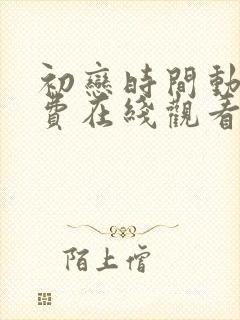 初戀時間動
費在綫觀看
陌上僧